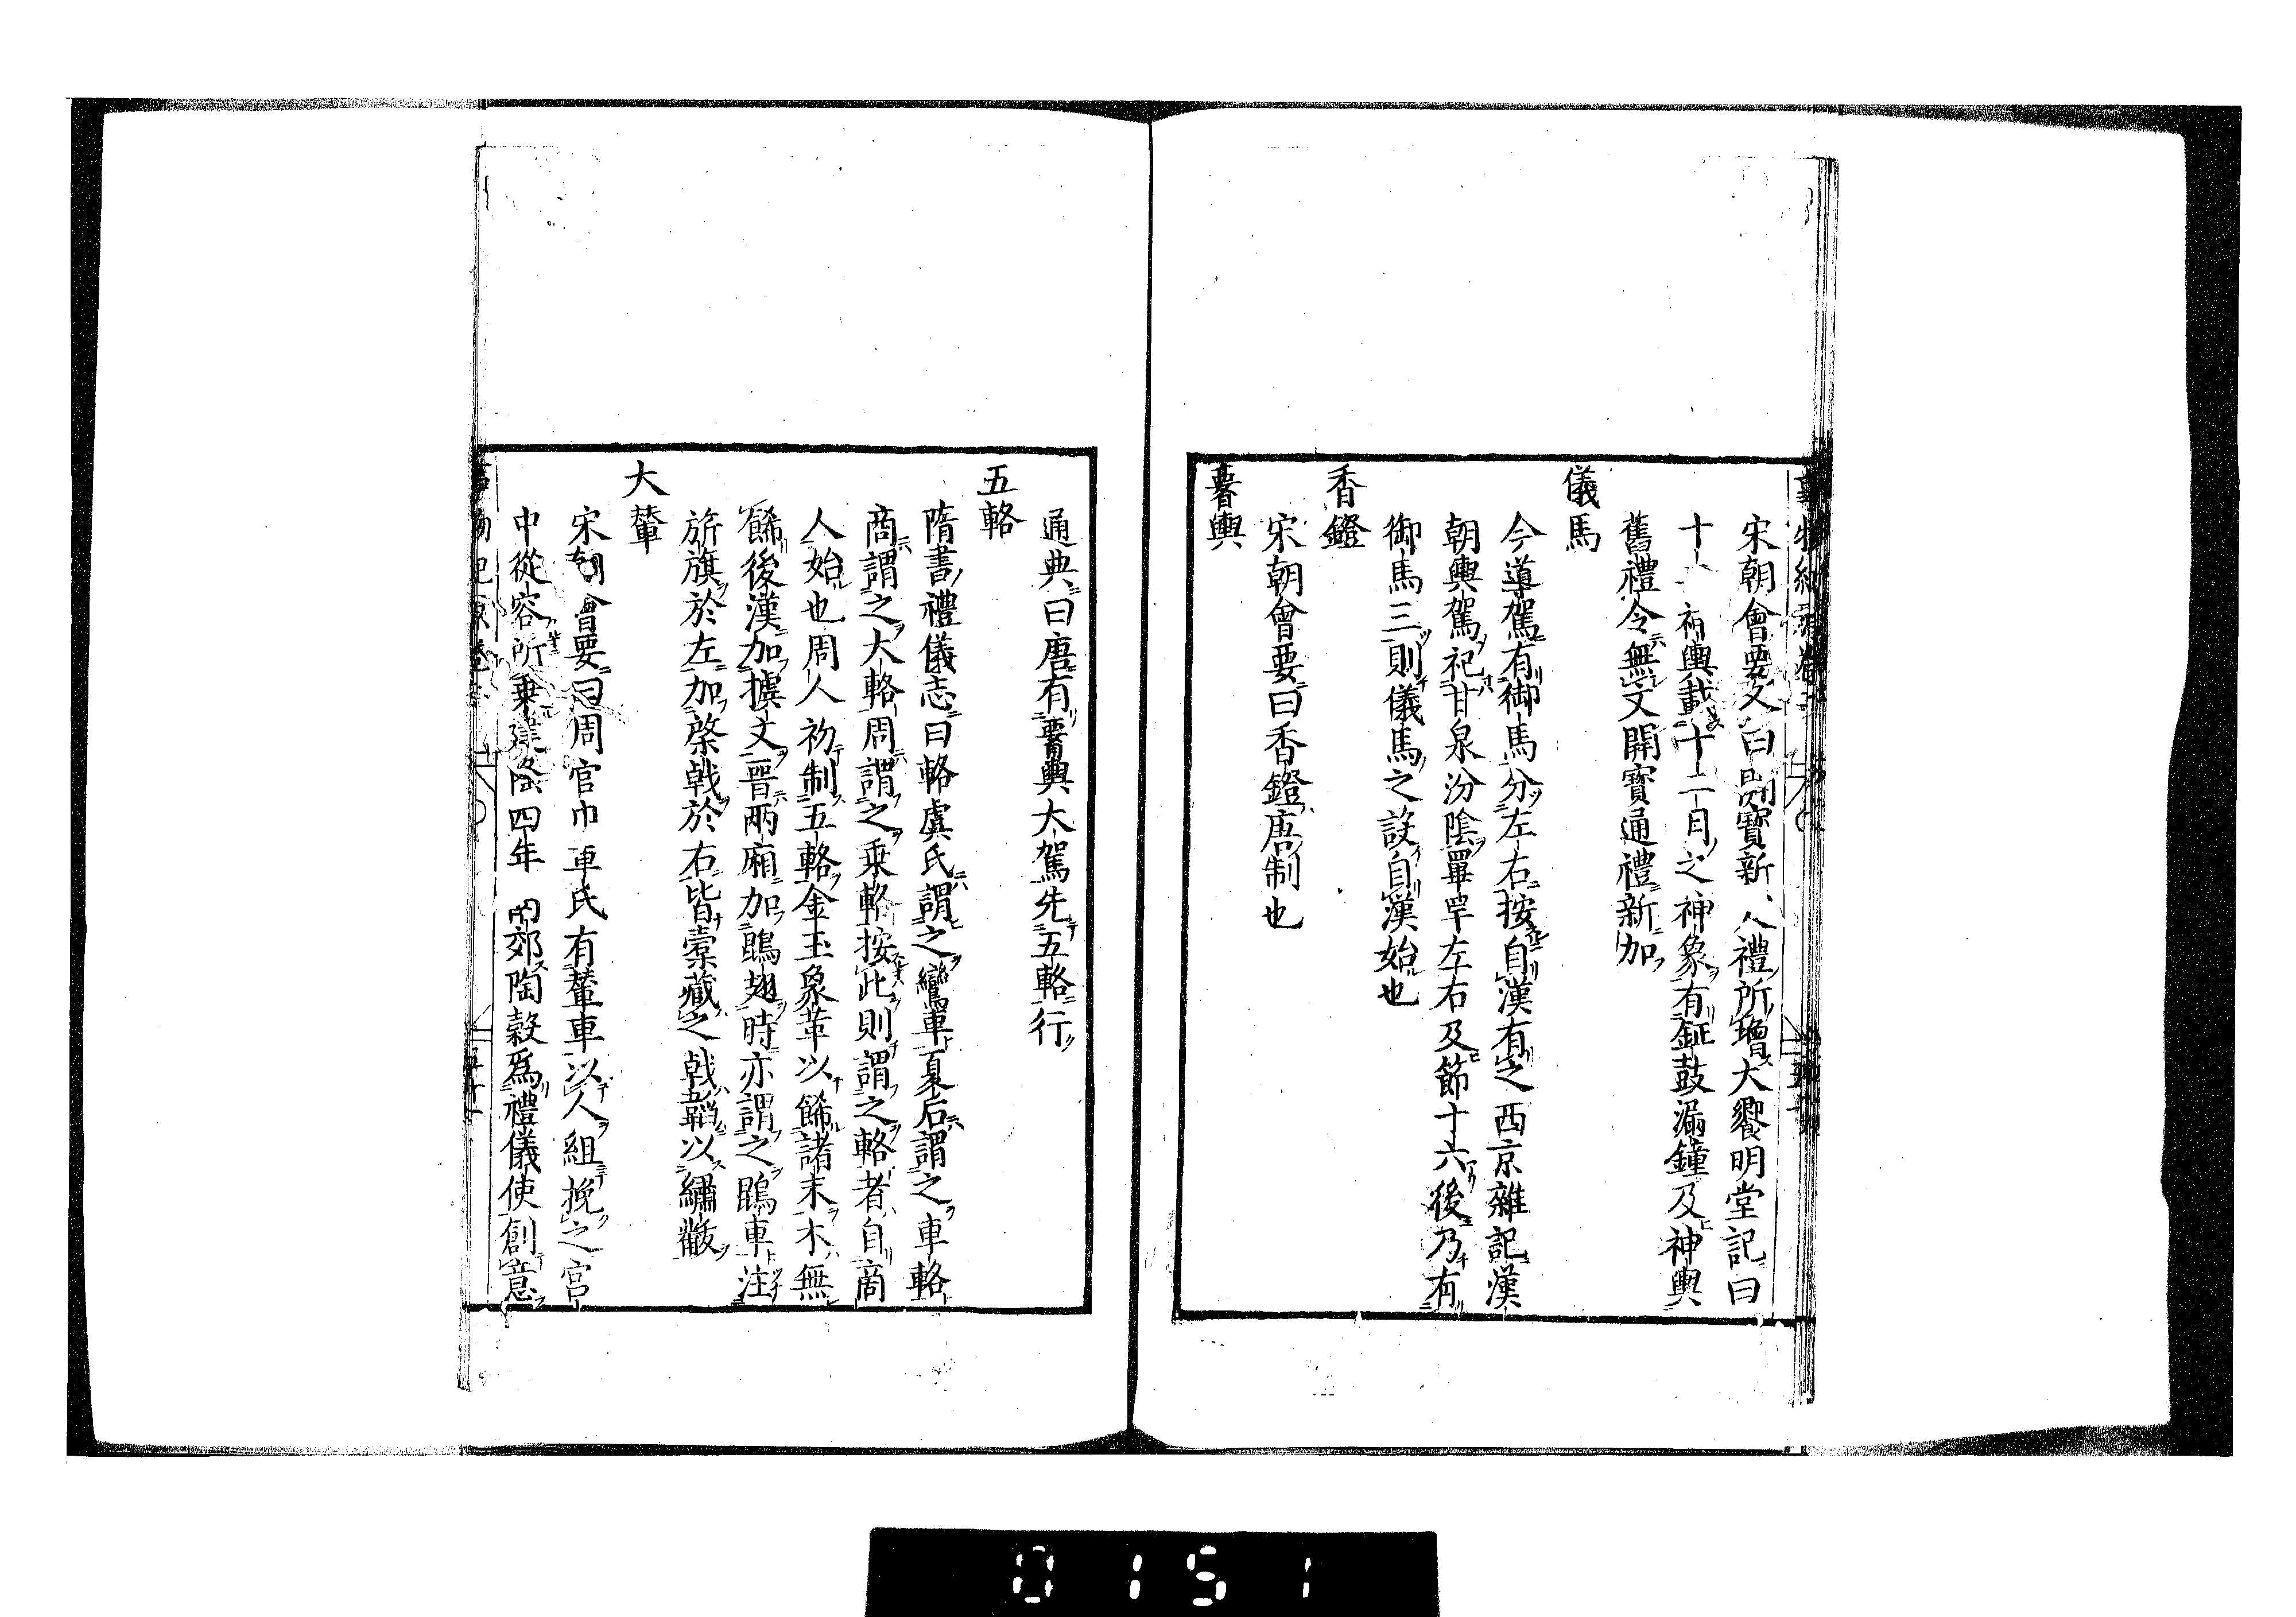 宋朝會要又曰開寶新禮所增大饗明堂記曰
十輿載十二月之神象有鉦鼓漏鐘及神輿
舊禮令無文開寶通禮新加
儀馬
今導駕有御馬分左右按自漢有之西京雜記漢
朝輿駕祀甘泉汾陰罼罕左右及節十六後乃有
御馬三則儀馬之設自漢始也
香鐙
宋朝會要曰香鐙唐制也
輿
通典曰唐有輿大駕先五輅行
五輅
隋書禮儀志曰輅虞氏謂之鸞車夏后謂之車輅
商謂之大輅周謂之乘輅按此則謂之輅者自商
人始也周人初制五輅金玉象革以餙諸末木無
餙後漢加文晋兩廂加鵾翅時亦謂之鵾車注
旂旗於左加棨戟於右皆橐藏之戟韜以繡黻
大輦
宋朝會要曰周官巾車氏有輦車以人組挽之宮
中從容所乗建隆四年南郊陶穀爲禮儀使創意
0151